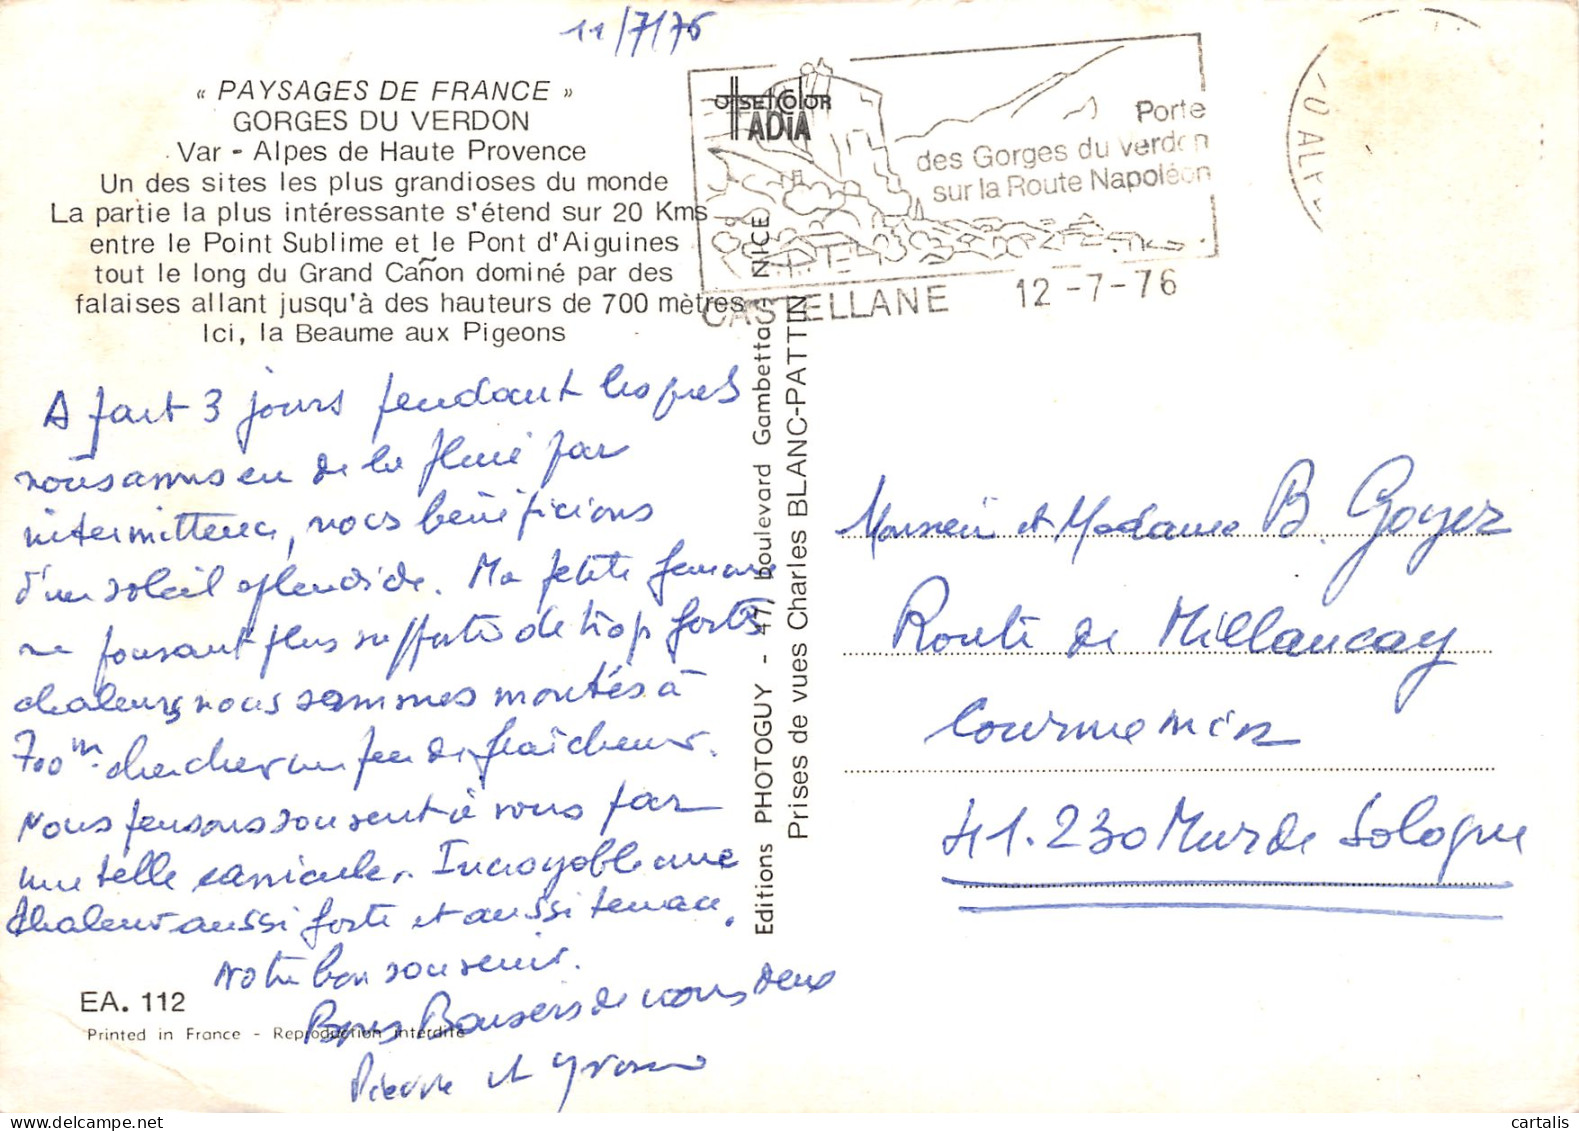 11/7/76
« PAYSAGES DE FRANCE »
GORGES DU VERDON
Var - Alpes de Haute Provence
Un des sites les plus grandioses du monde
La partie la plus intéressante s'étend sur 20 Kms
entre le Point Sublime et le Pont d'Aiguines
tout le long du Grand Cañon dominé par des
falaises allant jusqu'à des hauteurs de 700 mètres
Ici, la Beaume aux Pigeons
OffSET COlOR
ADIA
Porte
des Gorges du Verdon
sur la Route Napoléon
CASTELLANE 12-7-76
A part 3 jours pendant lesquels
nous avons eu de la pluie par
intermittence, nous bénéficions
d'un soleil splendide. Ma petite femme
ne pouvant plus supporter de trop fortes
chaleurs nous sommes montés à
700 m. chercher un peu de fraîcheur.
Nous pensons souvent à vous par
une telle canicule. Incroyable une
chaleur aussi forte et aussi tenace.
Notre bon souvenir.
Bons Baisers de nous deux
Pierre et Yvonne
EA. 112
Printed in France - Reproduction interdite
Editions PHOTOGUY - 47, boulevard Gambetta - NICE
Prises de vues Charles BLANC-PATTIN
Monsieur et Madame B. Goyer
Route de Millançay
Courmemin
41.230 Mur de Sologne
cartalis